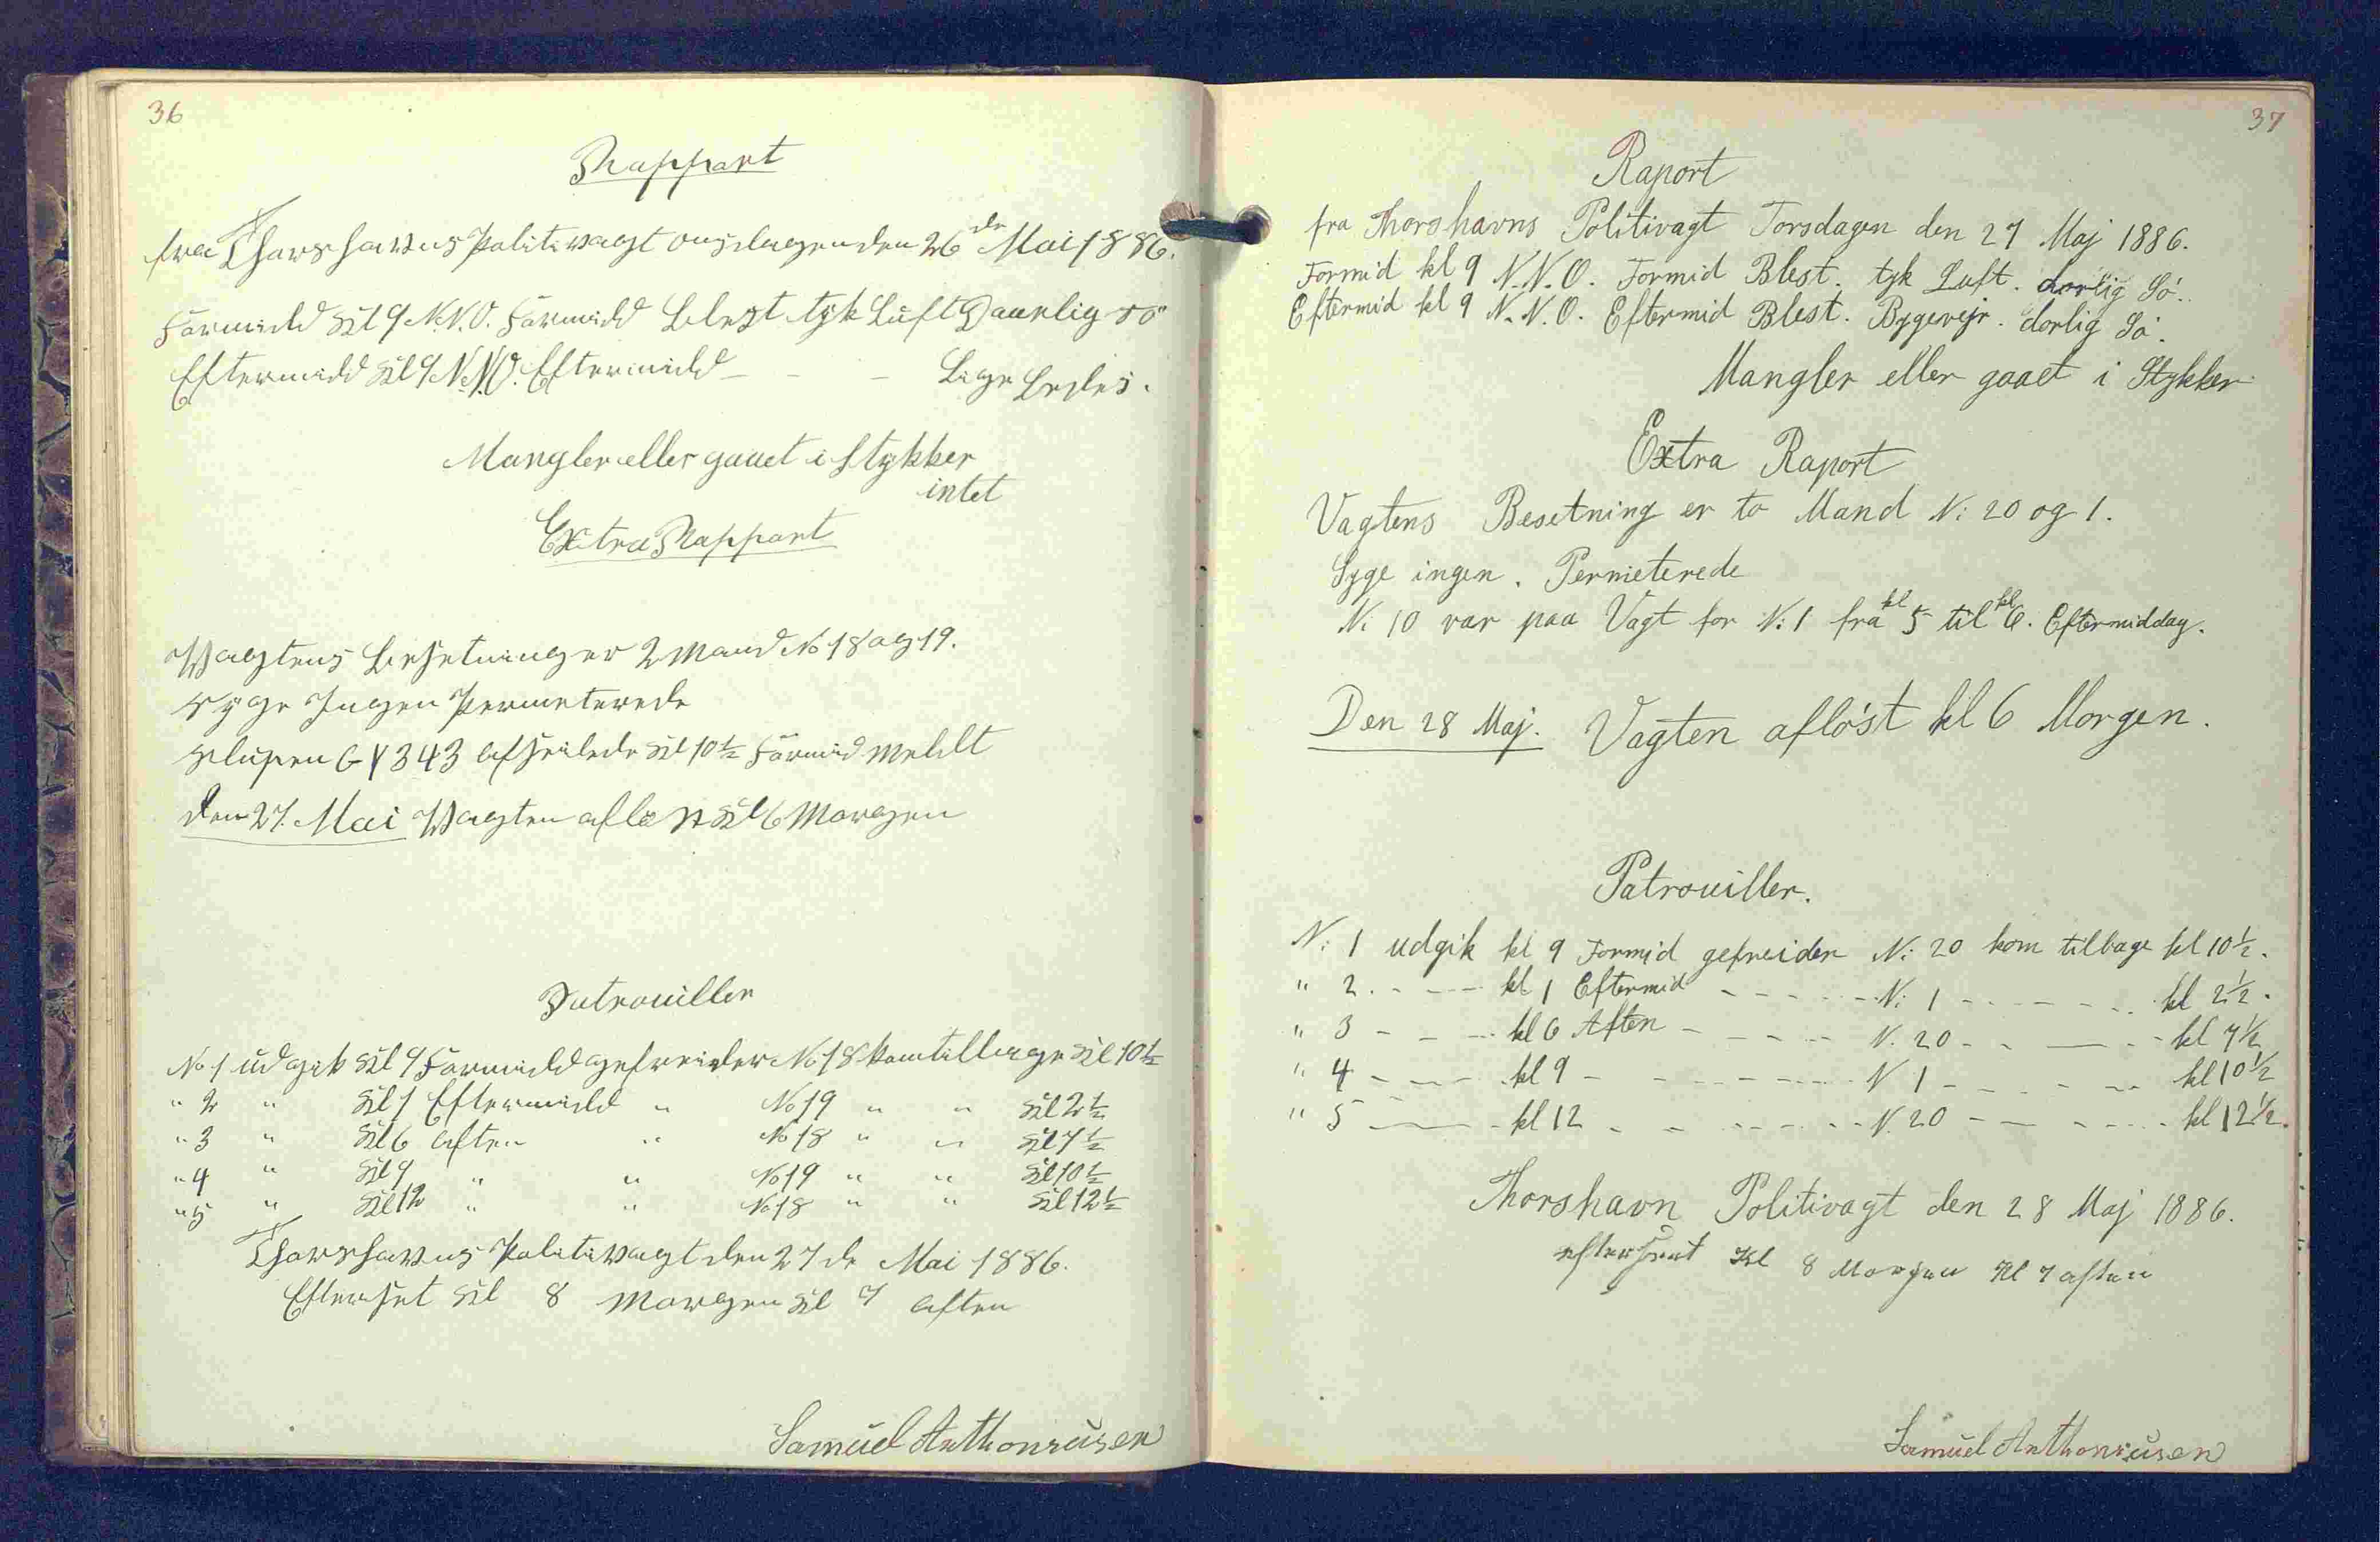 36
Rapport
fra Thorshavns Politivagt onsdagen den 26de Mai 1886.
Formidd Kl 9 N.N.O. Formidd Blest tyk Luft Daarlig sö
Eftermidd Kl 9 N.N.O. Eftermidd - - - Lige ledes.
Mangler eller gaaet i stykker
intet
Extra Rapport
Wagtens Besetning er 2 Mand No 18 og 19.
syge Ingen Permeterede
slupen GY 343 afseilede Kl 10½ Formid meldt
den 27. Mai Wagten aflöst Kl 6 Morgen
Patrouiller
No 1 udgik Kl 9 Formidd gefreider No 18 kom tilbage Kl 10½
" 2 " Kl 1 Eftermidd " No 19 " " Kl 2½
" 3 " Kl 6 Aften " No 18 " " Kl 7½
" 4 " Kl 9 " " No 19 " " Kl 10½
" 5 " Kl 12 " " No 18 " " Kl 12½
Thorshavns Politivagt den 27de Mai 1886.
Efterset Kl 8 Morgen Kl 7 Aften
Samuel Anthoniusen
37
Raport
fra Thorshavns Politivagt Torsdagen den 27 Maj 1886.
Formid kl 9 N.N.O. Formid Blest. tyk Luft. dorlig Sö.
Eftermid kl 9 N.N.O. Eftermid Blest. Bygevejr. dorlig Sö.
Mangler eller gaaet i Stykker
Extra Raport
Vagtens Besetning er to Mand N: 20 og 1.
Syge ingen. Permeterede
N: 10 var paa Vagt for N: 1 fra kl 5 til kl 6. Eftermiddag.
Den 28 Maj. Vagten aflöst kl 6 Morgen.
Patrouiller.
N: 1 udgik kl 9 Formid gefreider N: 20 kom tilbage kl 10½.
" 2 - - - kl 1 Eftermid - - - N: 1 - - - kl 2½.
" 3 - - - kl 6 Aften - - - N. 20 - - - kl 7½
" 4 - - - kl 9 - - - N 1 - - - kl 10½
" 5 - - - kl 12 - - - N. 20 - - - kl 12½.
Thorshavn Politivagt den 28 Maj 1886.
efterseet Kl 8 Morgen Kl 7 aften
Samuel Anthoniusen